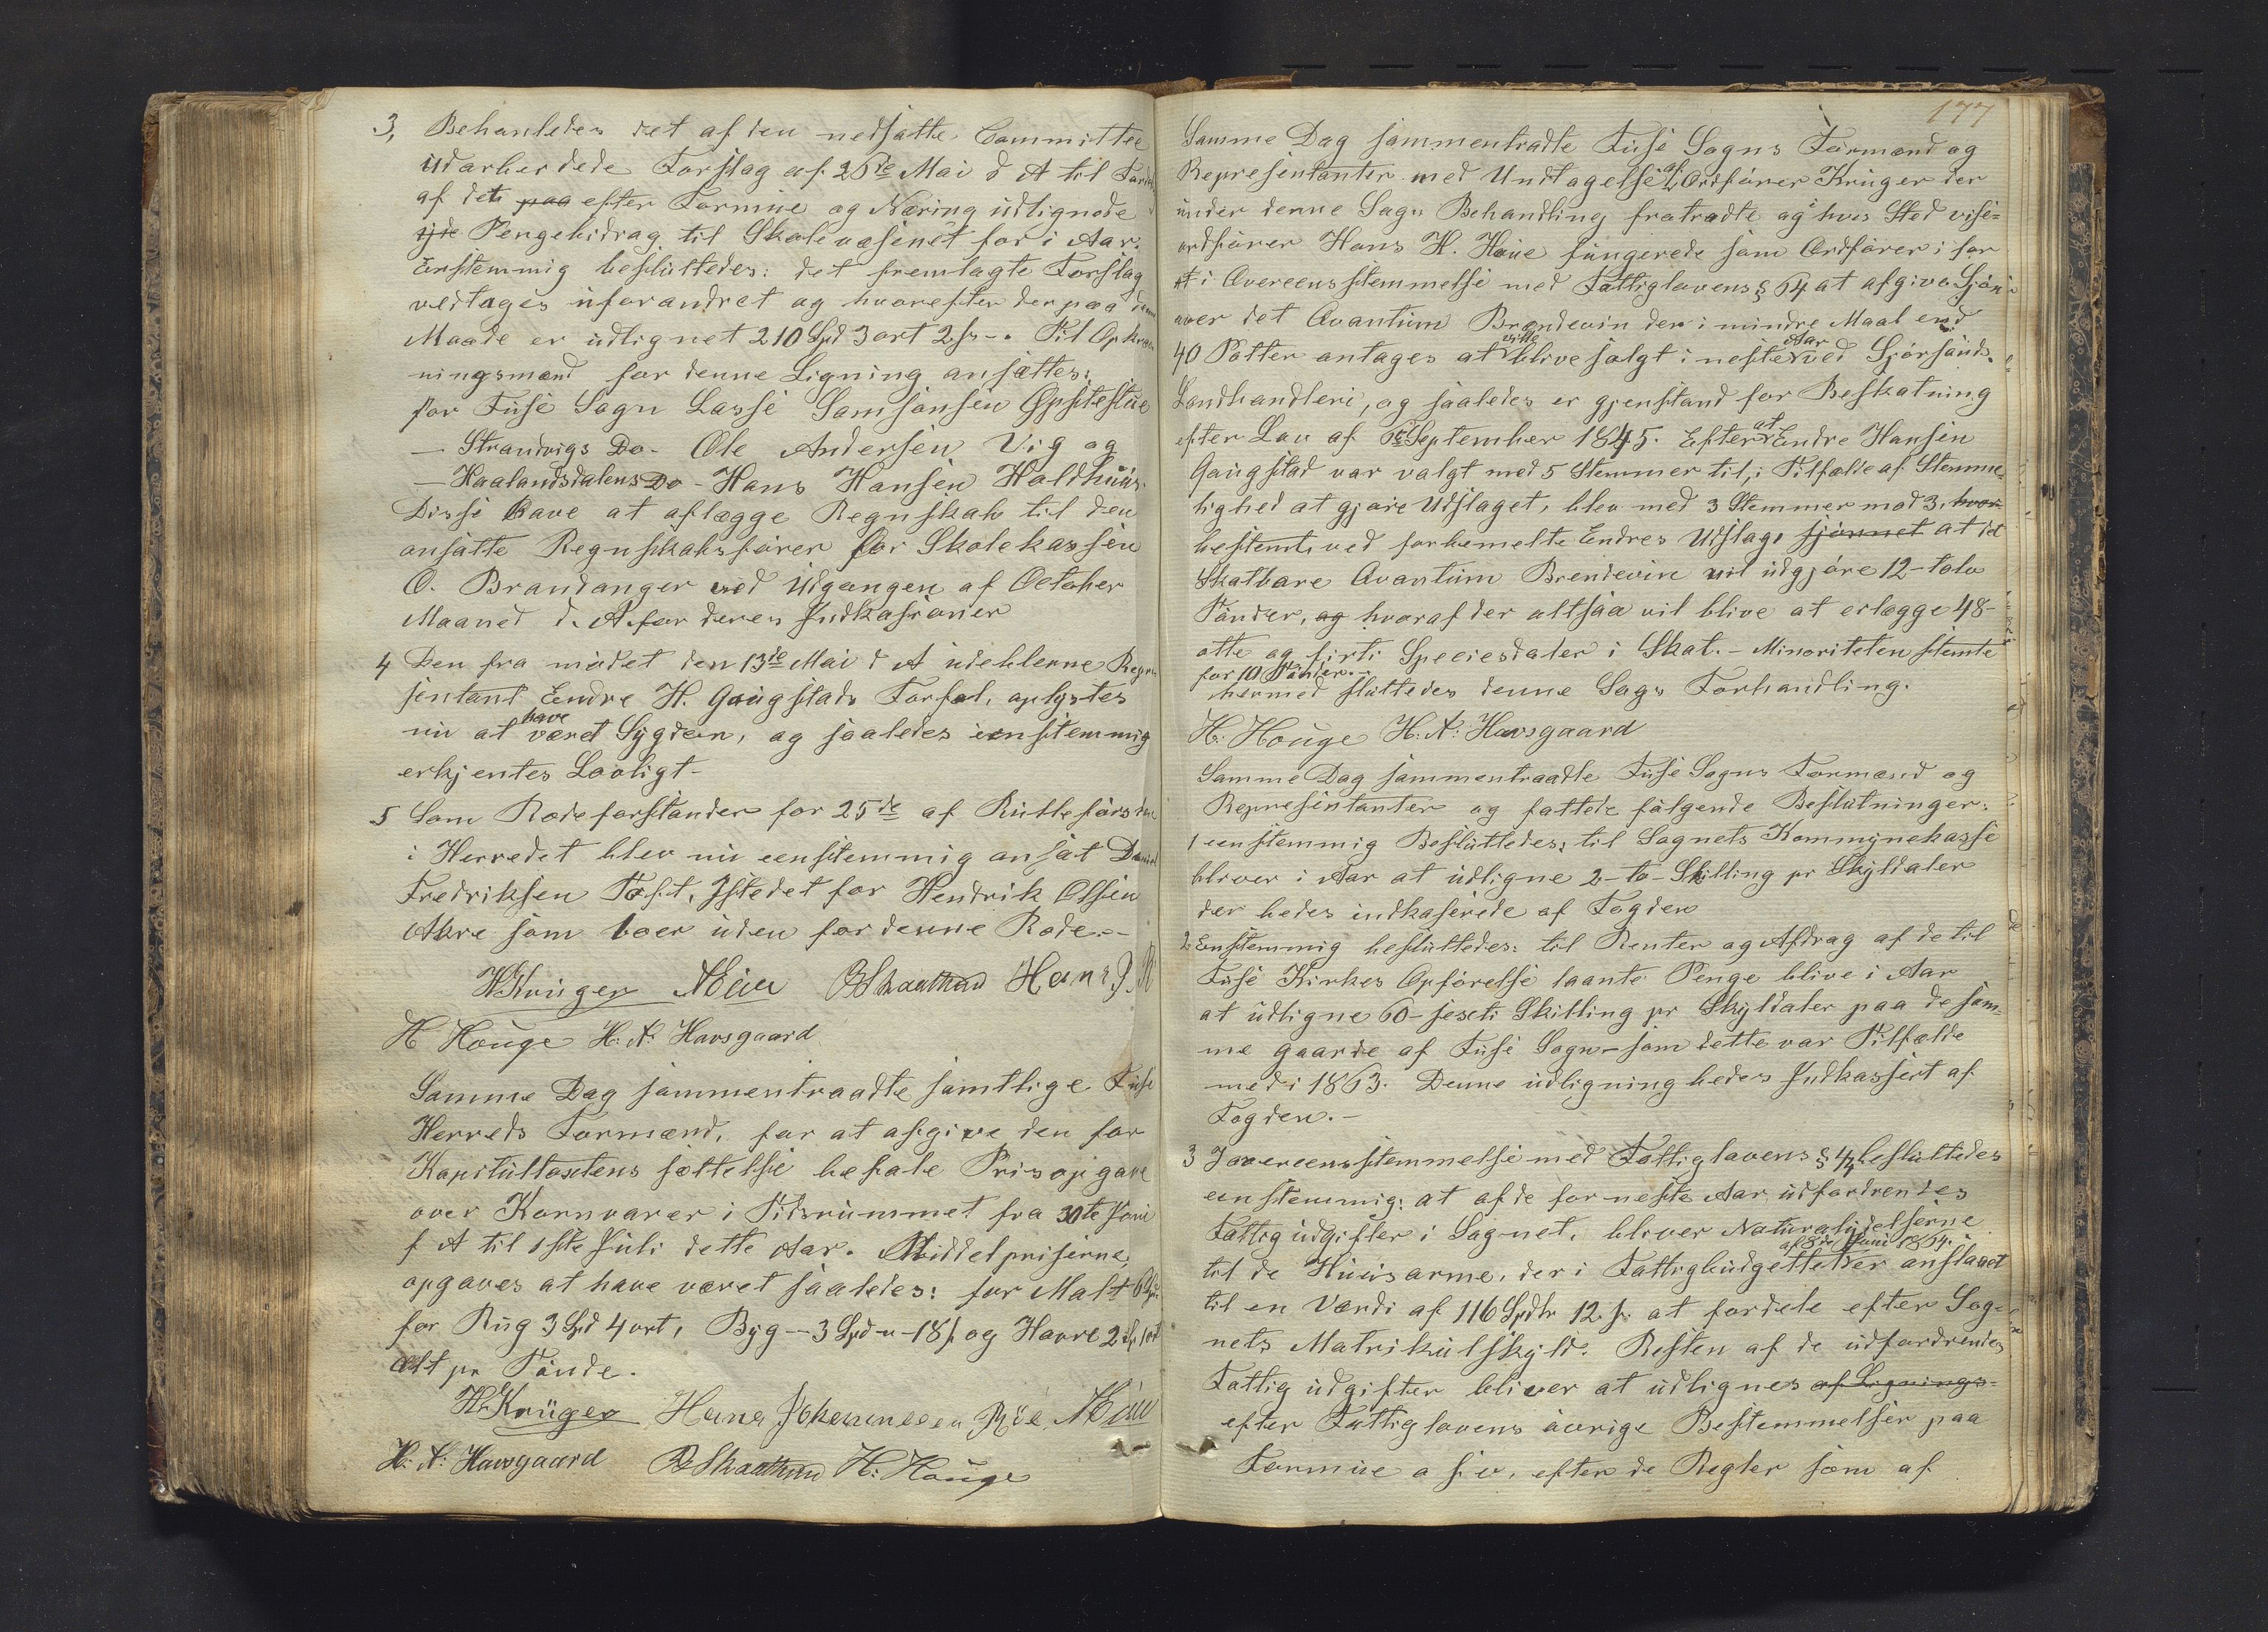 3, Behanledes det af den nedsatte Committee
udarbeidede Forslag af 26de Mai d A til
af dets paa efter Formue og Næring udlignede
Pengebidrag til Skolevæsenet for i Aar.
Enstemmig besluttedes: det fremlagte Forslag
vedtages uforandret og hvorefter der paa denne
Maade er udlignet 210 Spd 3 ort 2 s -. Til Opkræv
ningsmænd for denne Ligning ansættes:
for Fuse Sogn Lasse Samsonsen Opsitestue
— Strandvigs Do - Ole Andersen Vig og
— Haalandsdalens Do - Hans Hansen Holdhuus.
Disse have at aflægge Regnskab til den
ansatte Regnskabsfører for Skolekassen
O. Brandanger ved Udgangen af October
Maaned d. A. for deres Indkasioner
4 Den fra mødet den 13de Mai d A udeblevne Repre
sentant Endre H. Gaugstads Forfal, oplystes
nu at have været Sygdom, og saaledes eenstemmig
erkjentes Lovligt-
5 Som Rodeforstander for 25de af Rulleførsdne
i Herredet blev nu eenstemmig ansat Daniel
Fredriksen Tofst, Istedet for Hendrik Olsen
Økre som boer uden for denne Rode.-
HKrüger NEide BSkaathun Hans J. R
H Houge H. A. Havsgaard
Samme Dag sammentraadte samtlige Fuse
Herreds Formænd, for at afgive den for
Kapitultaxtens sættelse befale Prisopgave
over Kornvarer i Tidsrummet fra 30te Juni
f A til 1ste Juli dette Aar. Middelpriserne,
opgaves at have været saaledes: for Malt
for Rug 3 Spd 4 ort, Byg — 3 Spd - " - 18 s og Havre 2 Sp 1 ort
alt pr Tønde.
HKrüger Hans Johannesen Röe NEide
H. A. Havsgaard BSkaathun H. Houge
177
Samme Dag sammentradte Fuse Sogns Formænd og
Representanter med Undtagelse af Ordfører Krüger der
under denne Sags Behandling fratradte og i hvis Sted vise-
ordfører Hans H. Houe fungerede som Ordfører i for
at i Overeensstemmelse med Fattiglovens § 64 at afgive Sjøn
over det Qvantum Brændevin der i mindre Maal end
40 Potter antages at ville blive solgt i neste Aar ved Sjørsands
Landhandleri, og saaledes er gjenstand for Beskatning
efter Lov af 6te September 1845. Efter at Endre Hansen
Gaugstad var valgt med 5 Stemmer til, i Tilfælde af Stemme
lighed at gjøre Udslaget, blev med 3 Stemmer mod 3, hvor
bestemt, ved forbemelte Endres Udslag, sjønnet at det
Skatbare Qvantum Brendevin vil udgjøre 12 - tolv
Tønder, og hvoraf der altsaa vil blive at erlægge 48 -
otte og firti Speciesdaler i Skat. - Minoriteten stemte
for 10 Tønder. -
hermed sluttedes denne Sags Forhandling.
H. Houge H. A. Havsgaard
Samme Dag sammentraadte Fuse Sogns Formænd og
Representanter og fattede følgende Beslutninger:
1 eenstemmig Besluttedes: til Sognets Kommynekasse
bliver i Aar at udligne 2 - to - Skilling pr Skyldaler
der bedes indkaserede af Fogden
2 Enstemmig besluttedes: til Renter og Afdrag af de til
Fuse Kirkes Opførelse laante Penge blive i Aar
at udligne 60 - seseti Skilling pr Skyldaler paa de sam-
me gaarde af Fuse Sogn - som dette var Tilfælde
med i 1863. Denne udligning bedes Indkassert af
Fogden. -
3 I overeensstemmelse med Fattiglovens § 47 besluttedes
eenstemmig: at af de for neste Aar udfordrendes
Fattigudgifter i Sognet, bliver Naturalydelserne
til de Huusarme, der i Fattigbudgettet af 8de Juni 1864. er anslaaet
til en Værdi af 116 Spdlr 12 s. at fordele efter Sog-
nets Matrikulskyld. Resten af de udfordrendes
Fattigudgifter bliver at udlignes af Lignings-
efter Fattiglovens øvrige Bestemmelser paa
Formue o s v. efter de Regler som af